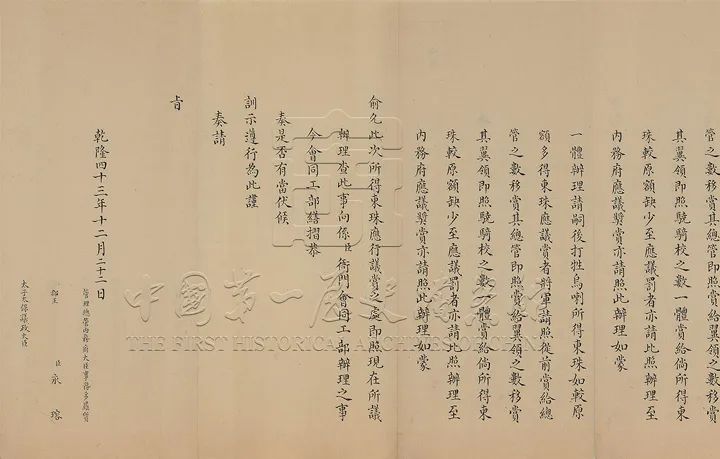 管之數移賞其總管即照賞給翼領之數移賞
其翼領即照驍騎校之數一體賞給倘所得東
珠較原額缺少至應議罰者亦請比照辦理至
內務府應議獎賞亦請照此辦理如蒙
一體辦理請嗣後打牲烏喇所得東珠如較原
額多得東珠應議賞者將軍請照從前賞給總
管之數移賞其總管即照賞給翼領之數移賞
其翼領即照驍騎校之數一體賞給倘所得東
珠較原額缺少至應議罰者亦請比照辦理至
內務府應議獎賞亦請照此辦理如蒙
俞允此次所得東珠應行議賞之處即照現在所議
辦理查此事向係臣衙門會同工部辦理之事
今會同工部繕摺恭
奏是否有當伏候
訓示遵行為此謹
奏請
旨
乾隆四十三年十二月二十二日
管理總管內務府大臣事務多羅質
郡王 臣 永瑢
太子太保議政大臣
中國第一歷史檔案館
THE FIRST HISTORICAL ARCHIVES OF CHINA